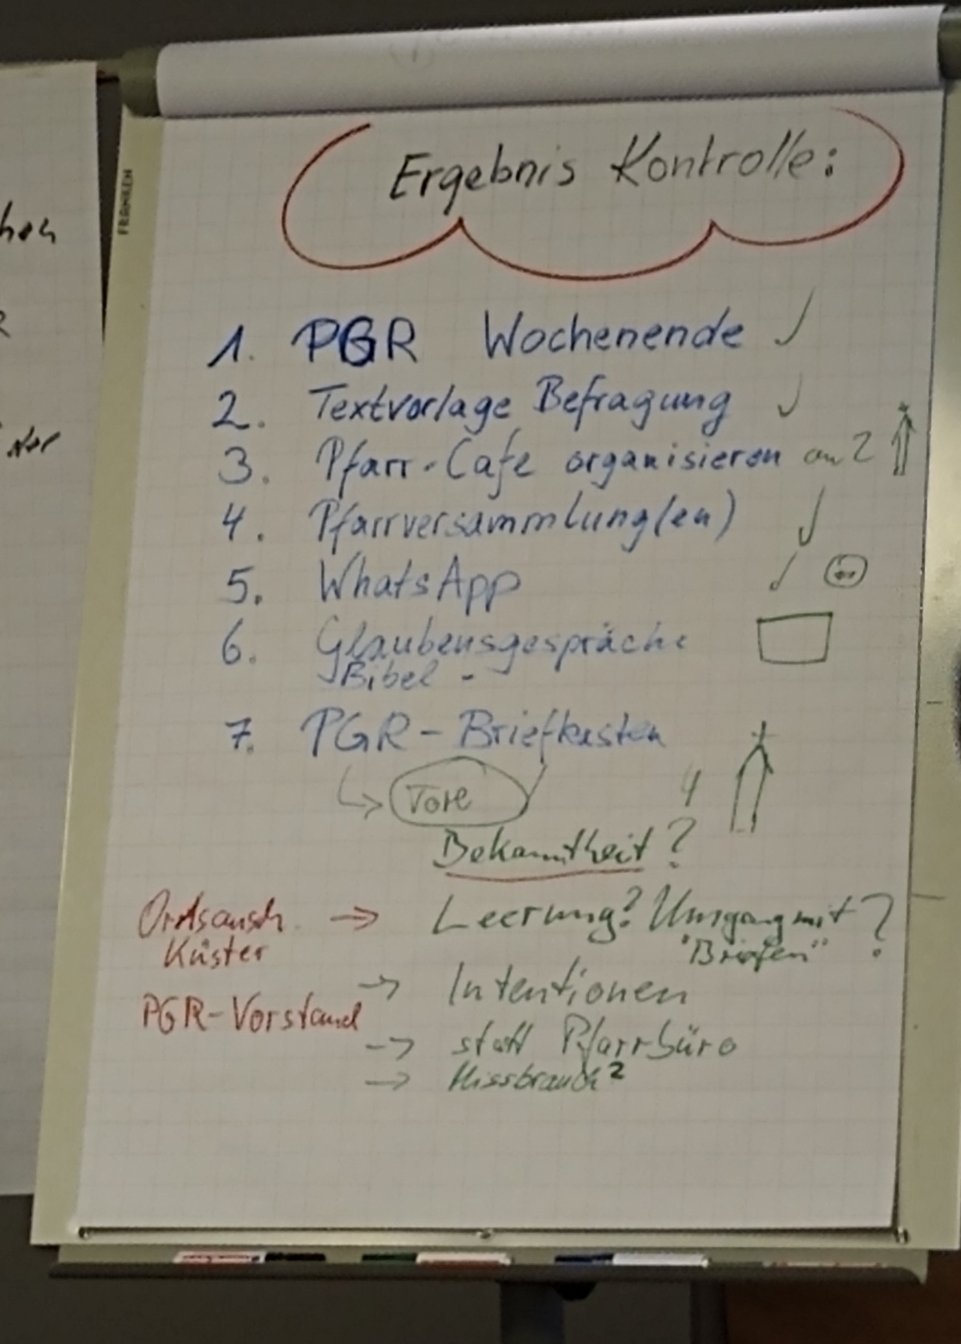 Ergebnis Kontrolle:
1. PGR Wochenende ✓
2. Textvorlage Befragung ✓
3. Pfarr-Cafe organisieren an 2
4. Pfarrversammlung(en) ✓
5. WhatsApp ✓
6. Glaubensgespräche
Bibel -
7. PGR-Briefkasten
4
Bekanntheit?
Ortsaussch. → Leerung? Umgang mit ?
Küster "Briefen"
→ Intentionen
PGR-Vorstand
→ statt Pfarrbüro
→ Missbrauch?
FRANKEN
hen